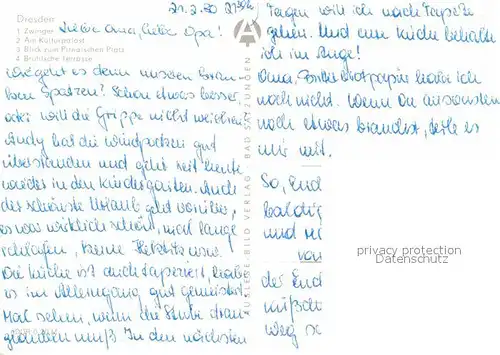 Dresden
1 Zwinger
2 Am Kulturpalast
3 Blick zum Pirnaischen Platz
4 Brühlsche Terrasse
21.2.80
Liebe Oma, lieber Opa!
wie geht es denn unseren kran-
ken Spatzen? Schon etwas besser,
oder will die Grippe nicht weichen?
Andy hat die Windpocken gut
überstanden und geht seit heute
wieder in den Kindergarten. Auch
der schönste Urlaub geht vorüber,
es war wirklich schön, mal lange
schlafen, keine Hektik usw.
Die Küche ist auch tapeziert, habe
es im Alleingang gut gemeistert.
Mal sehen, wenn die Stube dran
glauben muß. In den nächsten
AUSLESE-BILD-VERLAG · BAD SALZUNGEN
Tagen will ich nach Tapete
gehen. Und eure Küche behalte
ich im Auge!
Oma, habe ich
noch nicht. Wenn du ansonsten
noch etwas brauchst, teile es
mir mit.
So, End
baldig
und
von
der End
weg
privacy protection
Datenschutz